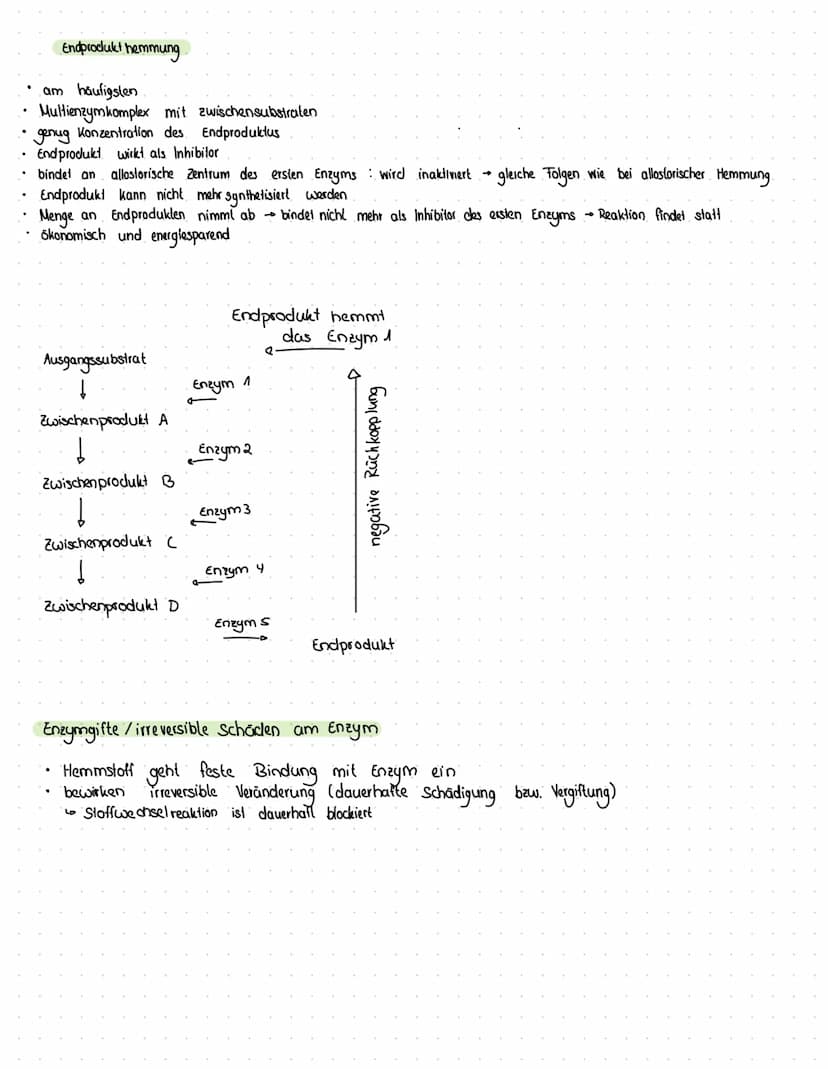 Endprodukthemmung
• am häufigsten
• Multienzymkomplex mit zwischensubstraten
• genug Konzentration des Endproduktus
• Endprodukt wirkt als Inhibitor
• bindet an allostorische Zentrum des ersten Enzyms : wird inaktiviert → gleiche Folgen wie bei allostorischer Hemmung
• Endprodukt kann nicht mehr synthetisiert werden
• Menge an Endprodukten nimmt ab → bindet nicht mehr als Inhibitor des ersten Enzyms → Reaktion findet statt
• ökonomisch und energiesparend
Endprodukt hemmt
das Enzym 1
Ausgangssubstrat
Enzym 1
Zwischenprodukt A
Enzym 2
Zwischenprodukt B
Enzym 3
Zwischenprodukt C
Enzym 4
Zwischenprodukt D
Enzym 5
negative Rückkopplung
Endprodukt
Enzymgifte / irreversible Schäden am Enzym
• Hemmstoff geht feste Bindung mit Enzym ein
• bewirken irreversible Veränderung (dauerhafte Schädigung bzw. Vergiftung)
↳ Stoffwechselreaktion ist dauerhaft blockiert